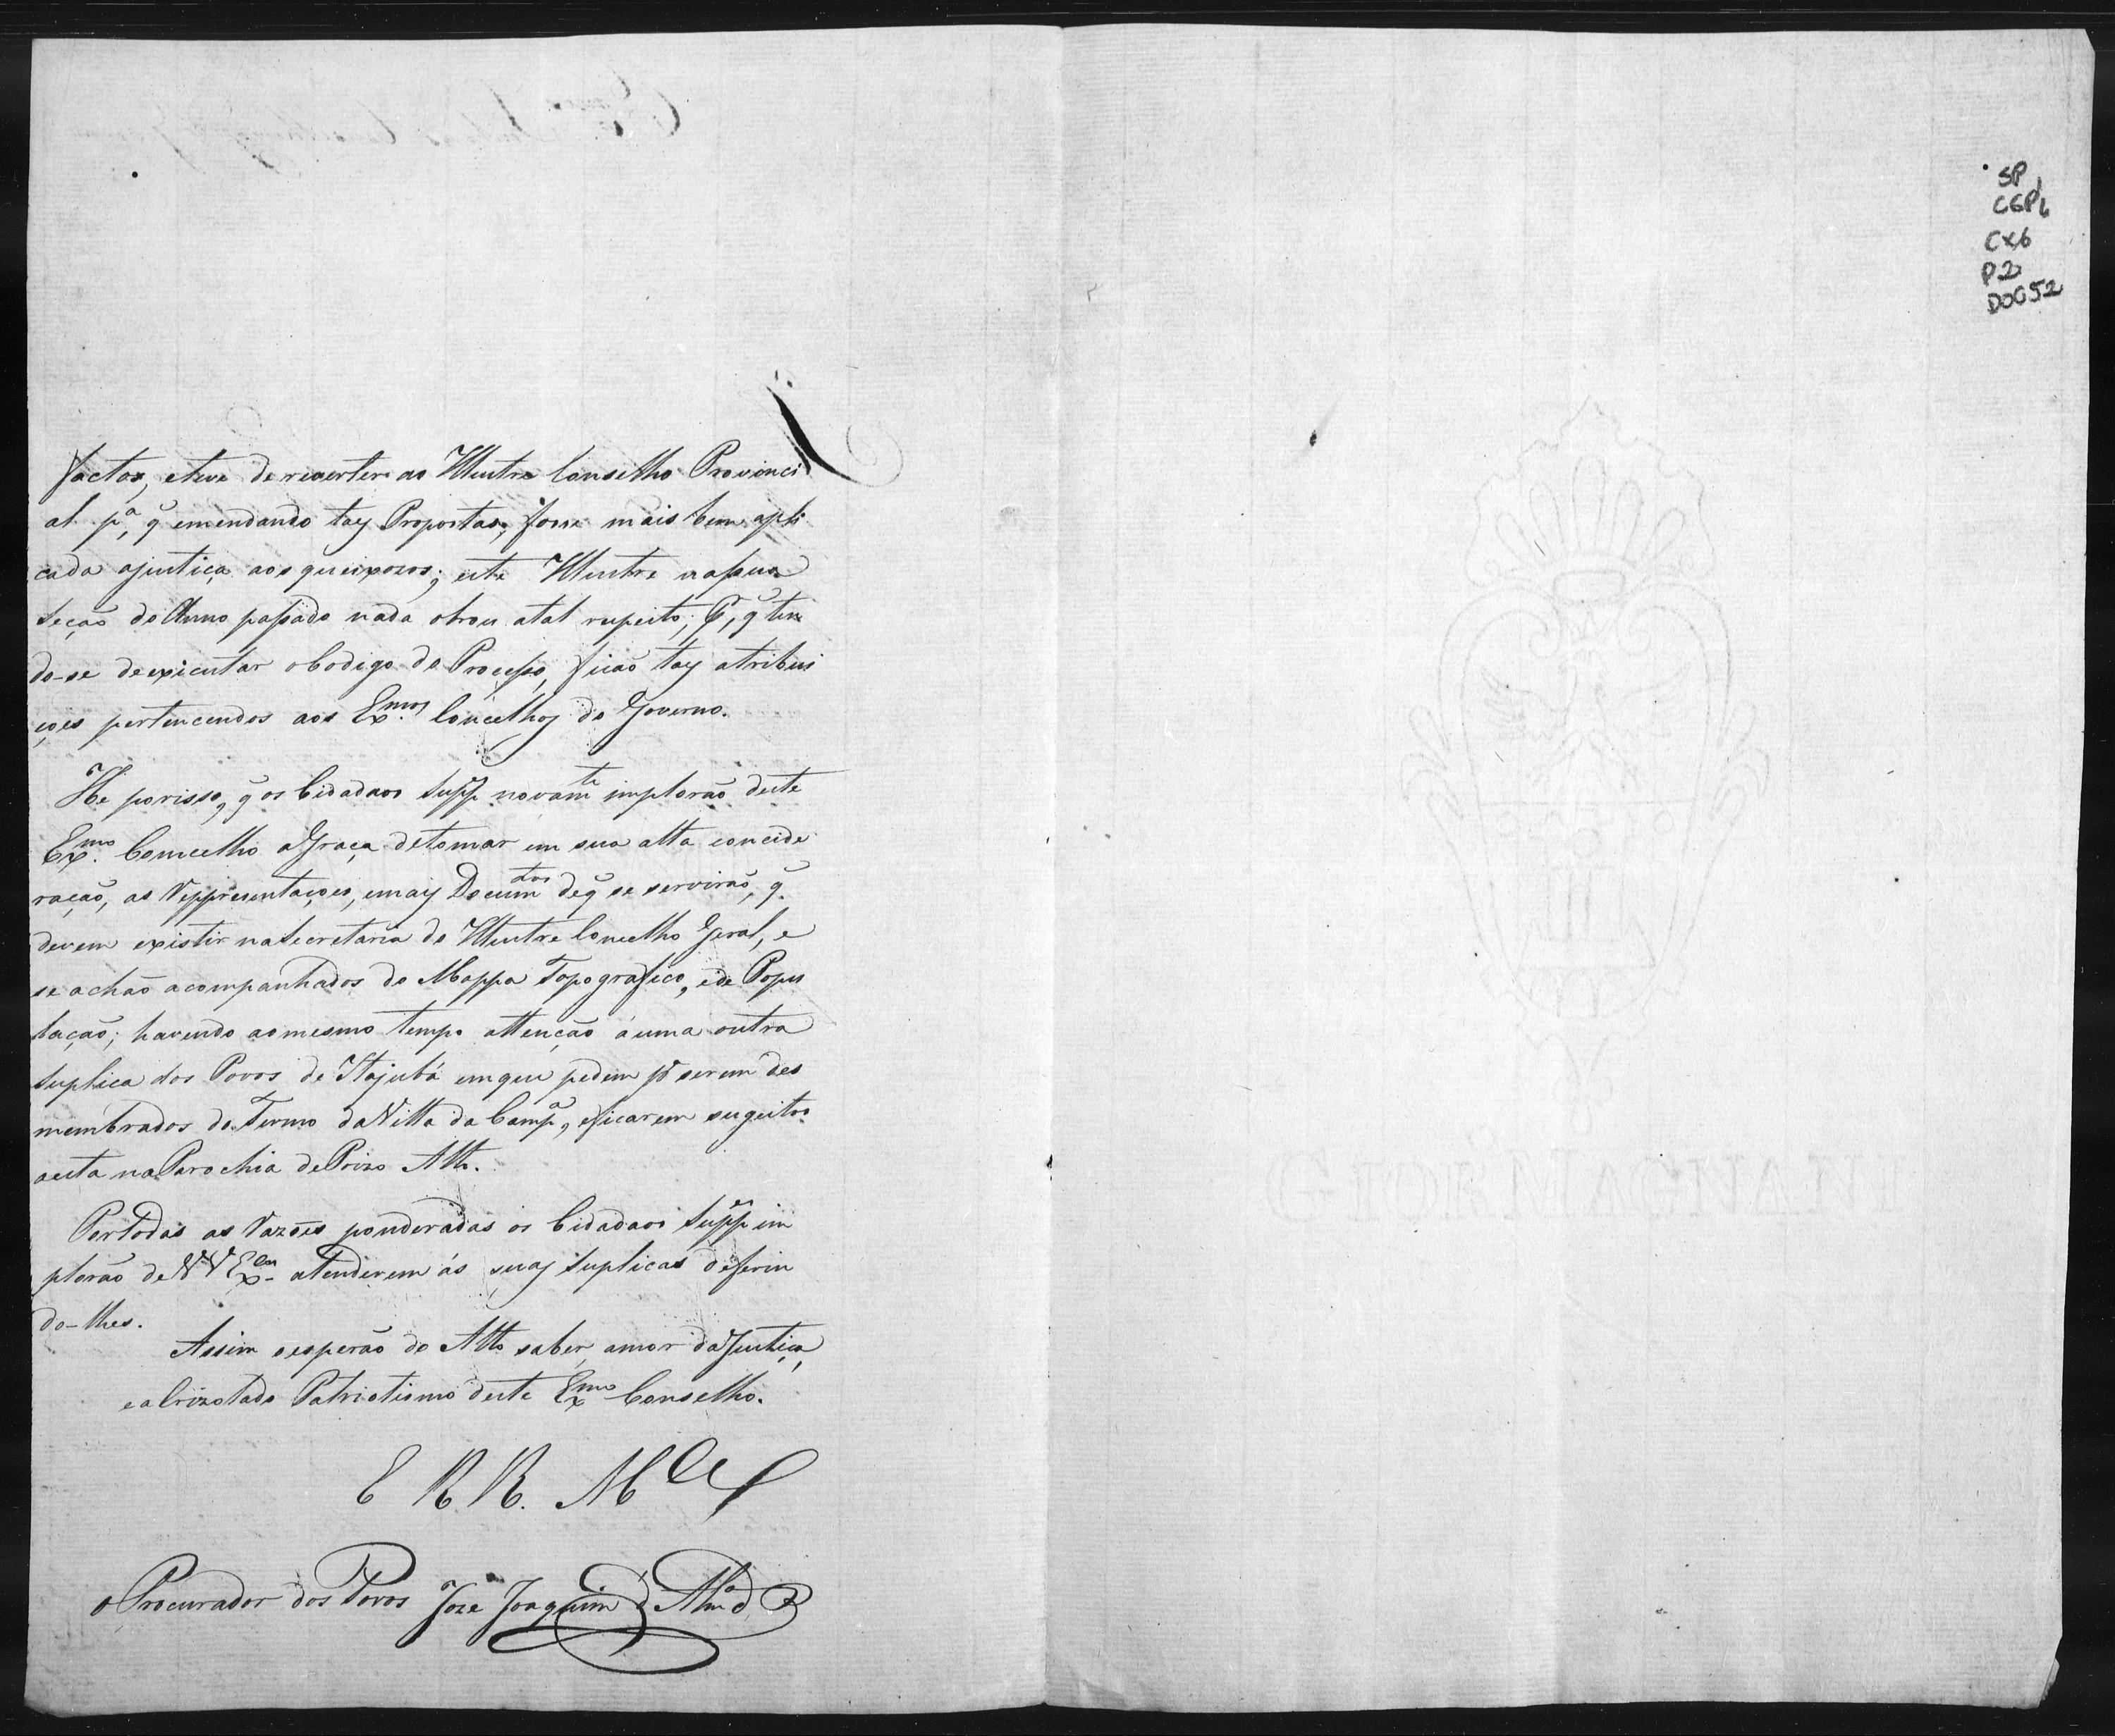 factos, eteve de reverter ao Illustre Conselho Provinci
al pª, q̃ emendando taes Propostas, fosse mais bem apli
cada ajustiça aos queixozos; este Illustre na sua
Seção do Anno passado nada obrou atal respeito; E, q̃ ten
do-se de exicutar o Codigo do Processo, ficaõ taes atribui
çoes pertencendos aos Ex.mos Concelhos do Governo.
He porisso, q̃ os Cidadaos Supp. novam.te implorão deste
Ex.mo Comcelho a Graça detomar em sua alta concide
ração, as Reppresentaçoes, emais Docum.tos deq̃ se servirão, q̃
devem existir na Secretaria do Illustre Concelho Geral, e
se achão acompanhados do Mappa Topografico, ede Popu
lação; havendo aomesmo tempo attenção á uma outra
suplica dos Povos de Itajubá emque pedem p.ª serem des
membrados do Termo da Villa da Camp.ª, eficarem sugeitos
aesta na Parochia de Pozo Alto.
Portodas as Razões ponderadas os Cidadaos Supp im
plorão de VV Ex.cias atenderem ás suas suplicas deferin
do-lhes.
Assim o esperão do Alto saber, amor da Justiça,
ealcrizotado Patriotismo deste Ex.mo Conselho.
E R R. M.ces
o Procurador dos Povos Joze Joaquim d' Alm.da
SP
CGP1
CX6
P2
DOC52